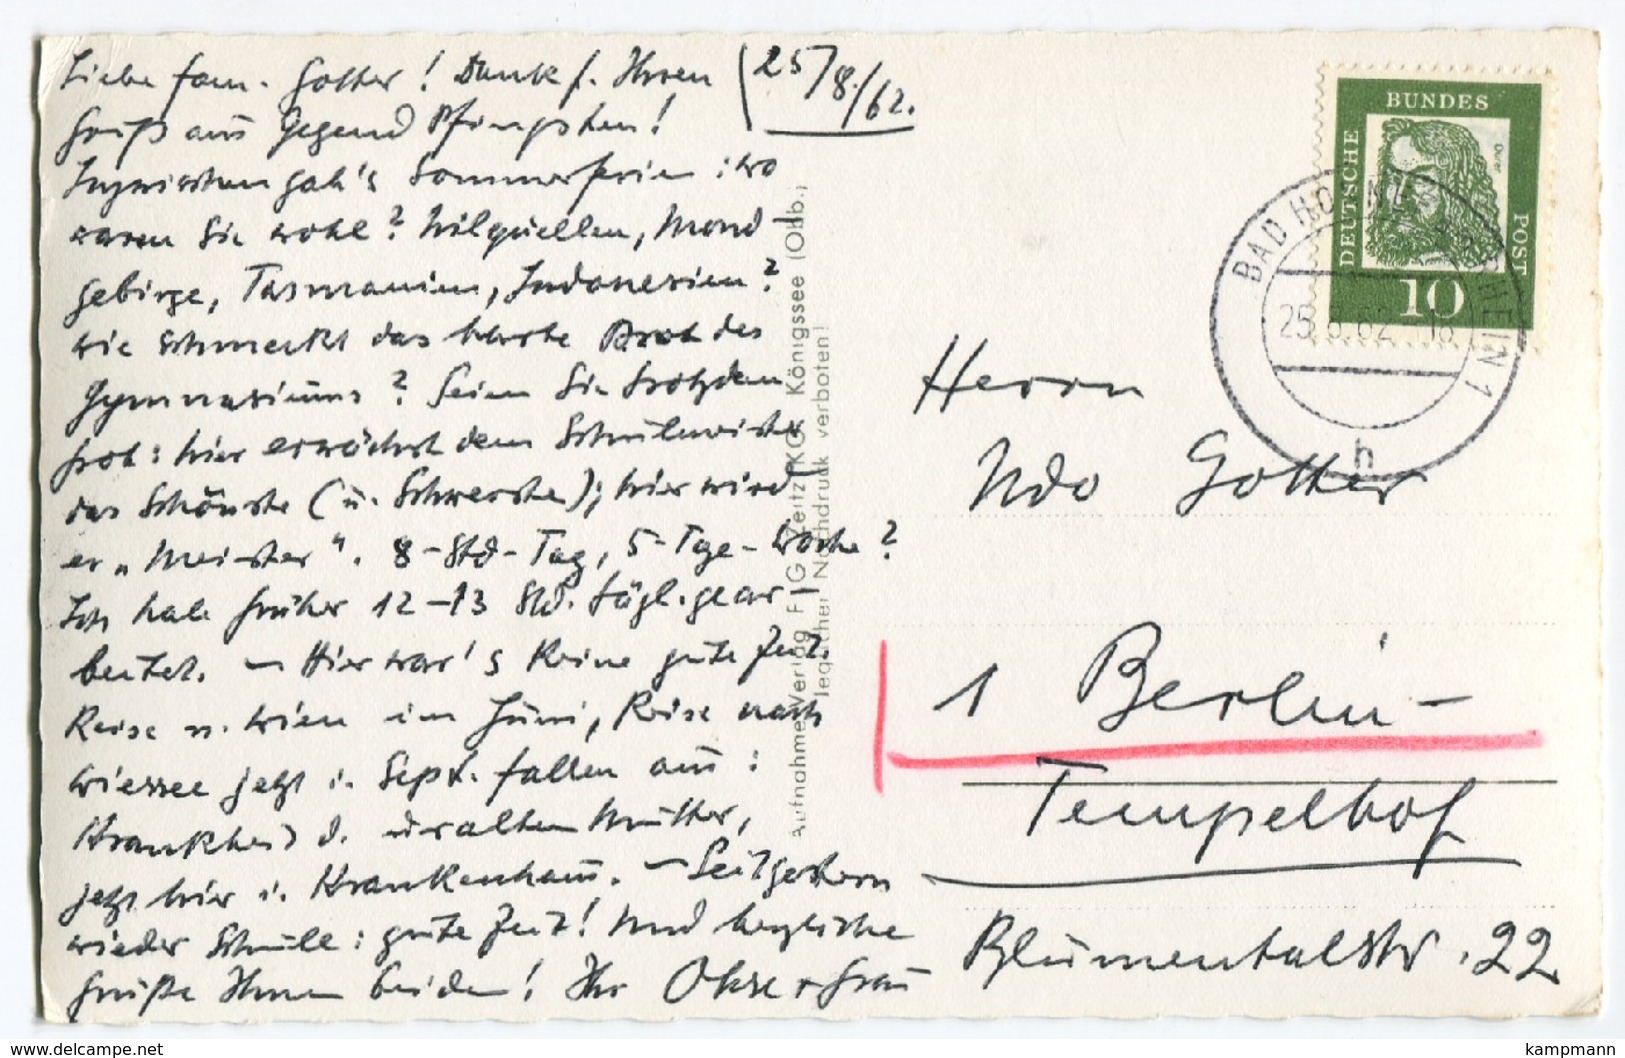 Liebe Fam. Gotter! Dank f. Ihren
(25/8./62.
Gruß aus Gegend Pfingsten!
Inzwischen gab's Sommerferien: wo
waren Sie wohl? Nilquellen, Mond-
gebirge, Tasmanien, Indonesien?
Wie schmeckt das harte Brot des
Gymnasiums? Seien Sie trotzdem
froh: hier erwächst dem Schulmeister
das Schönste (u. Schwerste); hier wird
er „Meister“. 8-Std-Tag, 5-Tge-Woche?
Ich habe früher 12–13 Std. tägl. gear-
beitet. – Hier war's keine gute Zeit.
Reise n. Wien im Juni, Reise nach
Wiessee jetzt i. Sept. fallen aus:
Krankheit d. uralten Mutter,
jetzt hier i. Krankenhaus. – Seit gestern
wieder Schule: gute Zeit! Und herzliche
Grüße Ihnen beiden! Ihr + Frau
Aufnahme Verlag F G Zeitz KG Königssee (Obb.)
jeglicher Nachdruck verboten!
DEUTSCHE
BUNDES
POST
Dürer
10
BAD HONNEF RHEIN 1
25.8.62 - 18
h
Herrn
Udo Gotter
1 Berlin-
Tempelhof
Blumentalstr. 22
www.delcampe.net
kampmann